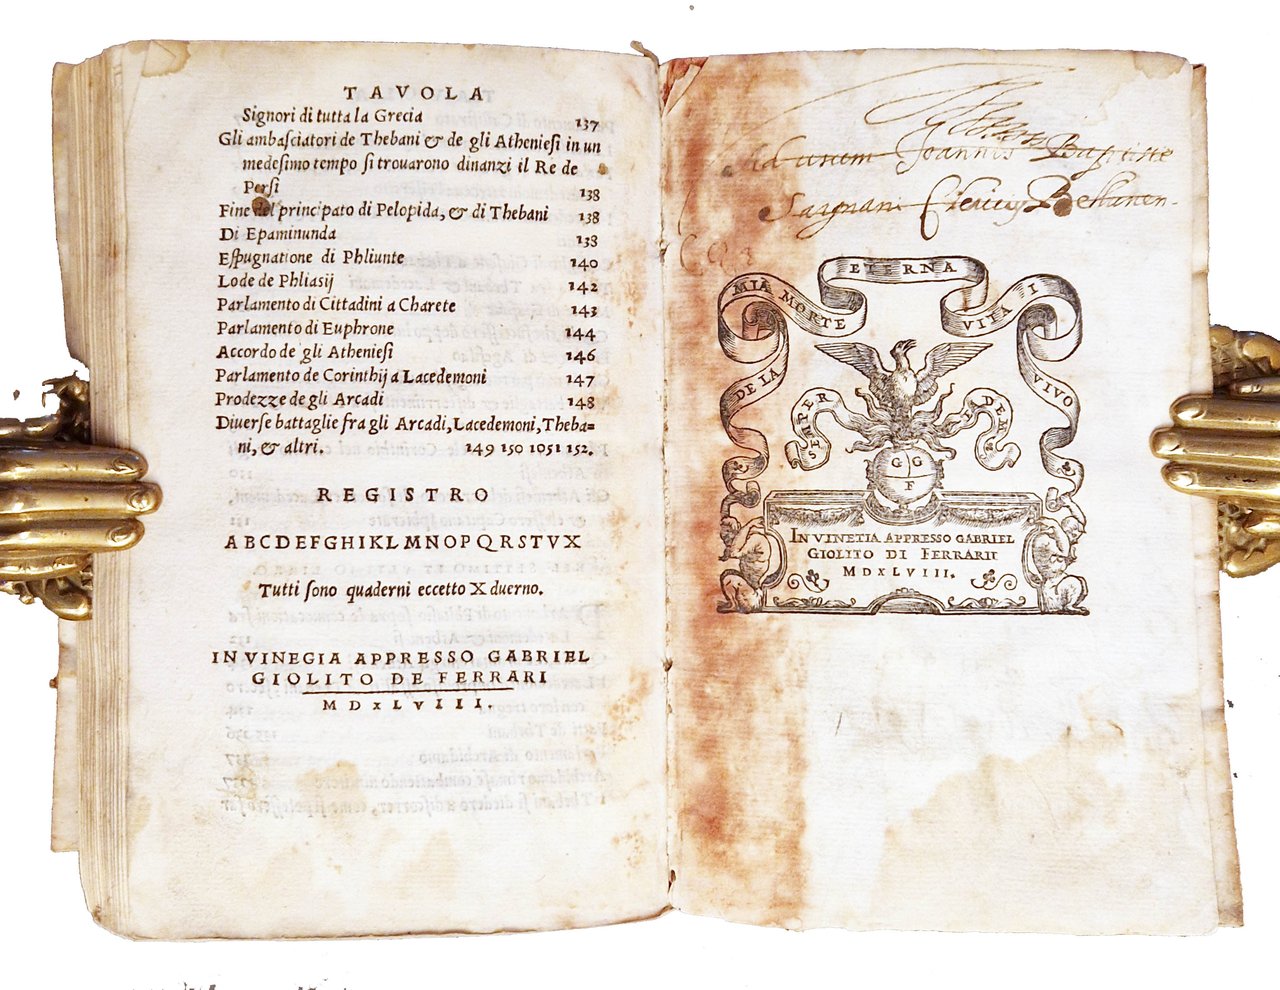 TAVOLA
Signori di tutta la Grecia 137
Gli ambasciatori de Thebani & de gli Atheniesi in un
medesimo tempo si trouarono dinanzi il Re de
Persi 138
Fine del principato di Pelopida, & di Thebani 138
Di Epaminunda 138
Espugnatione di Phliunte 140
Lode de Phliasij 142
Parlamento di Cittadini a Charete 143
Parlamento di Euphrone 144
Accordo de gli Atheniesi 146
Parlamento de Corinthij a Lacedemoni 147
Prodezze de gli Arcadi 148
Diuerse battaglie fra gli Arcadi, Lacedemoni, Theba=
ni, & altri. 149 150 1051 152.
REGISTRO
ABCDEFGHIKLMNOPQRSTVX
Tutti sono quaderni eccetto X duerno.
IN VINEGIA APPRESSO GABRIEL
GIOLITO DE FERRARI
MDXLVIII.
Ad usum Joannis Baptiste
DE LA MIA MORTE ETERNA VITA I VIVO
SEMPER EADEM
G G
F
IN VINETIA APPRESSO GABRIEL
GIOLITO DI FERRARII
MDXLVIII.